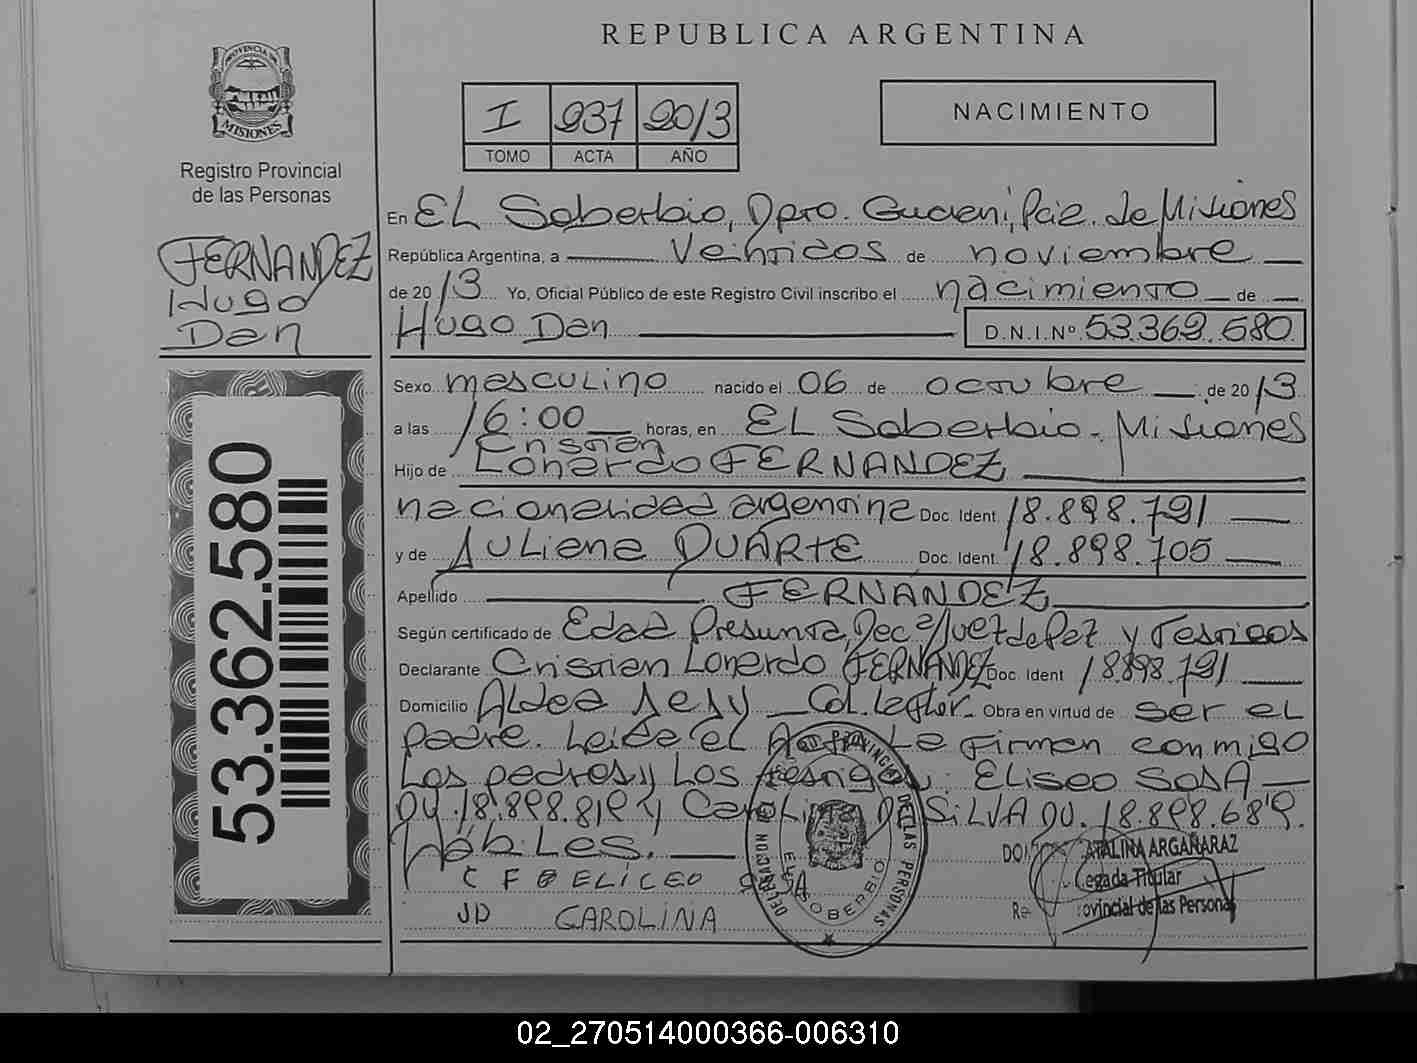 REPUBLICA ARGENTINA
PROVINCIA DE
MISIONES
Registro Provincial
de las Personas
FERNANDEZ
Hugo
Dan
53.362.580
I 937 2013
TOMO ACTA AÑO
NACIMIENTO
En EL Soberbio, Dpto. Guarani, Pcia. de Misiones
República Argentina, a veintidos de noviembre
de 2013 Yo, Oficial Público de este Registro Civil inscribo el nacimiento de
Hugo Dan D.N.I.Nº 53.362.580
Sexo masculino nacido el 06 de octubre de 2013
a las 16:00 horas, en EL Soberbio - Misiones
Cristian
Hijo de Lonardo FERNANDEZ
nacionalidad argentina Doc. Ident. 18.898.791
y de Juliana DUARTE Doc. Ident. 18.898.705
Apellido FERNANDEZ
Según certificado de Edad Presunta, Dec. Juez de Paz y Testigos
Declarante Cristian Lonardo FERNANDEZ Doc. Ident 18.898.791
Domicilio Aldea Jejy Col. Obra en virtud de ser el
padre. Leida el Acta La Firman conmigo
Los padres y Los testigos: Eliseo SOSA
DU. 18.898.819 y Carolina DA SILVA DU. 18.898.689.
Hábiles.
C F ELICEO SOSA
JD CAROLINA
DELEGACION PROVINCIAL DE LAS PERSONAS
EL SOBERBIO
CATALINA ARGAÑARAZ
Legada Titular
Provincial de las Personas
02_270514000366-006310